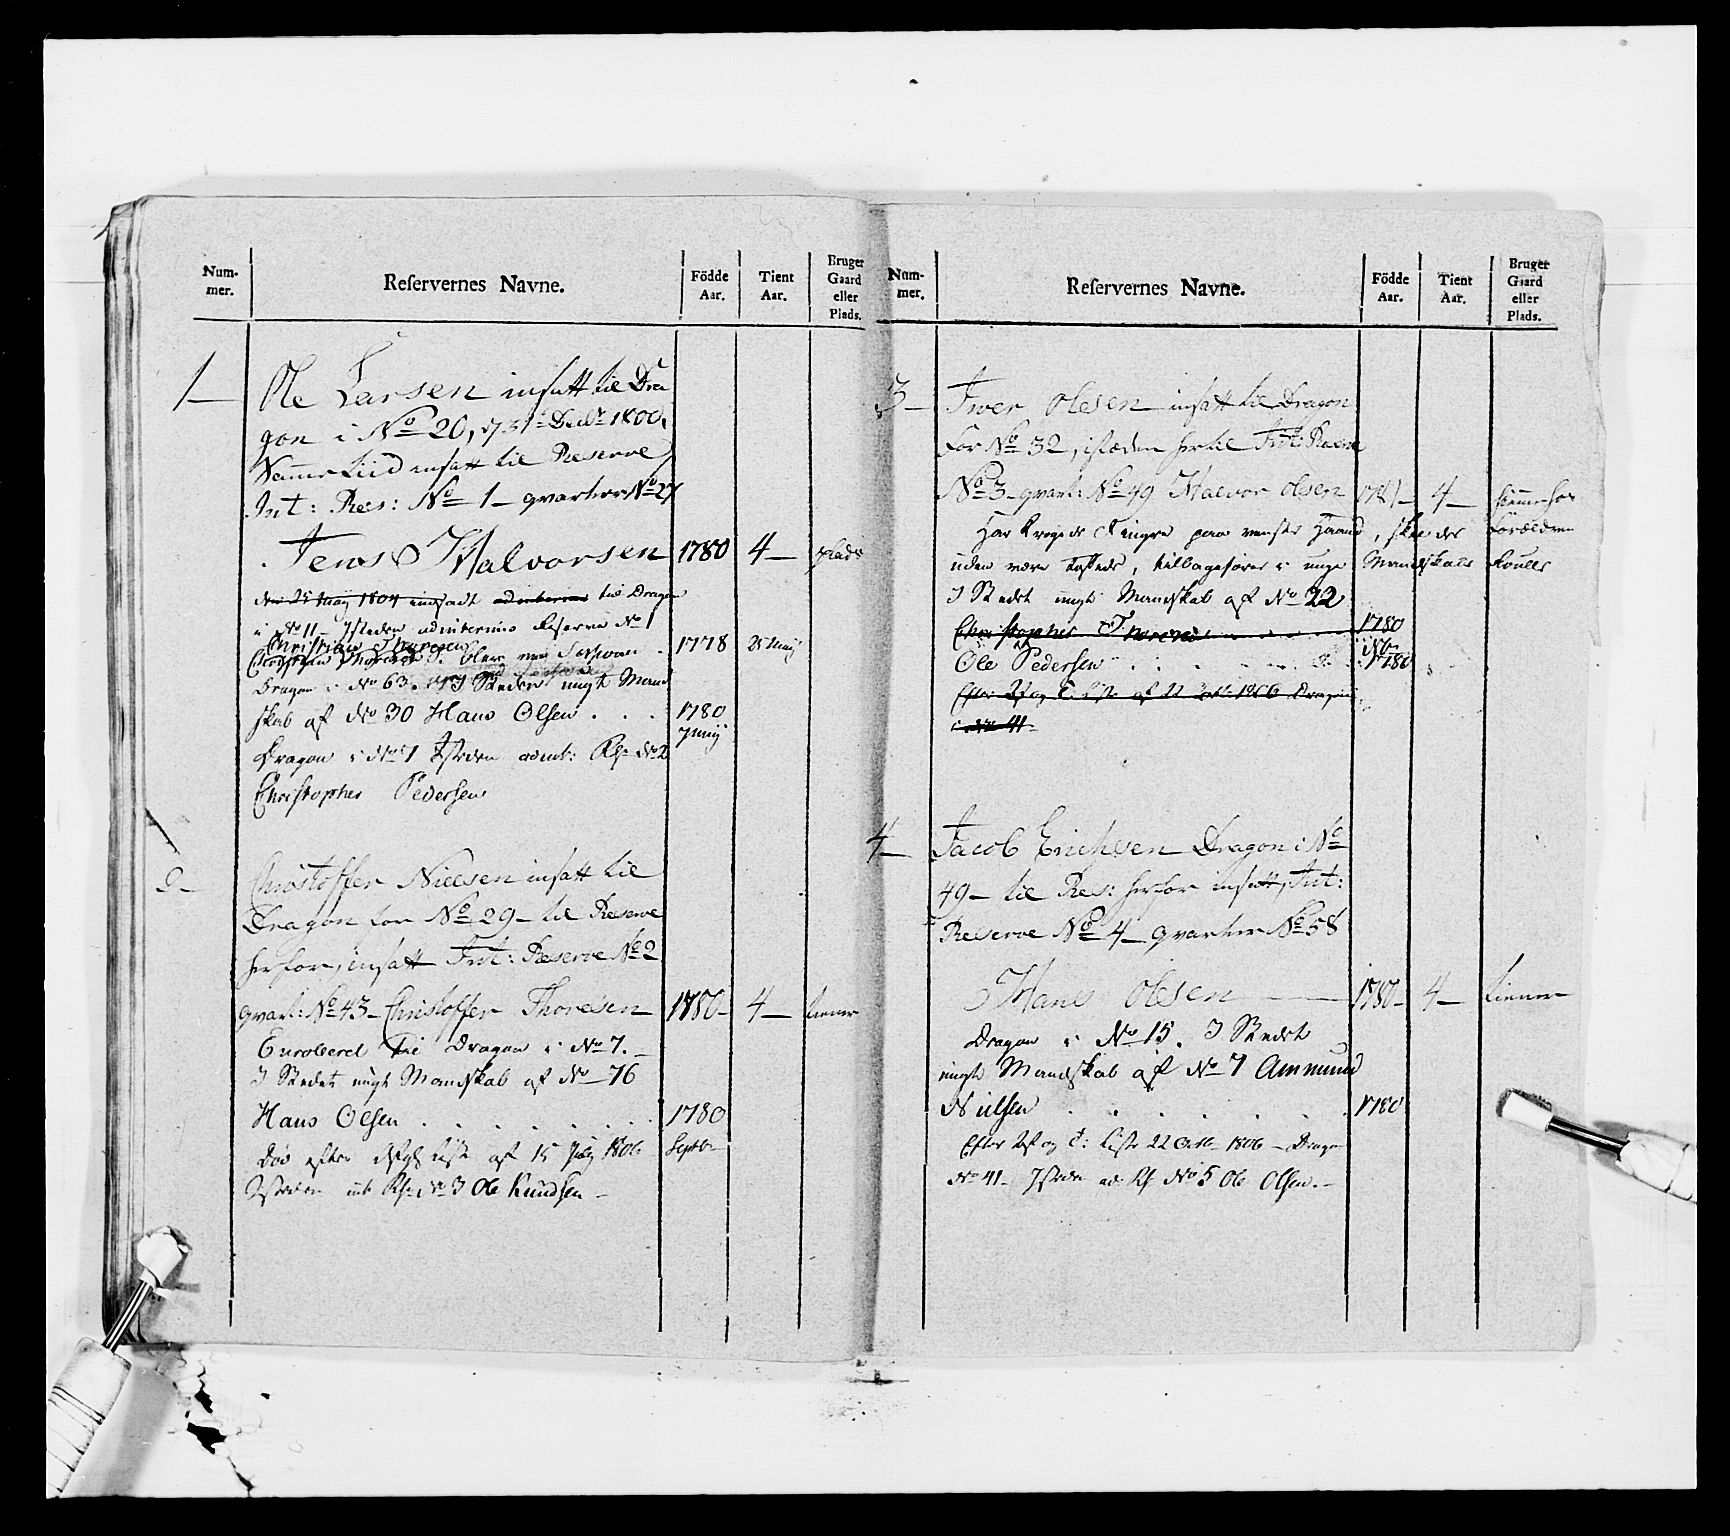 Num-
mer.
Reservernes Navne.
Födde
Aar.
Tient
Aar.
Bruger
Gaard
eller
Plads.
1
Ole Larsen insatt til Dra
gon i No 20, 1800,
Samme tiid insatt til Reserve
Int: Res: No 1 qvarteer No 27
Jens Halvorsen 1780 4 plads
den 25 May 1804 indsadt til Dragon
i No 11 Isteden Reserve No 1
Christian Thoresen
1778 25 Maij
Dragon i No 63. I Steden nygt Mand
skab af No 30 Hans Olsen . . . 1780
Dragon i No 7 Isteden admt: Rs: No 2
Christopher Pedersen
2
Christoffer Nielsen insatt til
Dragon for No 29 til Reserve
herfor, insatt Int: Reserve No 2
qvart: No 43 Christoffer Thoresen 1780 4 tiener
Enrolleret til Dragon i No 7.
I Stedet nygt Mandskab af No 76
Hans Olsen . . . . . . . 1780
Død efter liste af 15 1806 Septbr
Isteden int: Rs: No 3 Ole Knudsen
Num-
mer.
Reservernes Navne.
Födde
Aar.
Tient
Aar.
Bruger
Gaard
eller
Plads.
3
Iver Olesen insatt til Dragon
for No 32, isteden hertil Int: Reserve
No 3 qvart: No 49 Halvor Olsen 1781 4 hos
Har Krogede Fingre paa venstre Haand, Forældrene
uden være , tilbageføres i unge Mandskabs Roulle
I Stedet nygt Mandskab af No 22
Christopher Thoresen 1780
Ole Pedersen . . . . . 1780
Efter liste af 22 octb: 1806 Dragon
i No 41
4
Jacob Erichsen Dragon i No
49 til Res: herfor insatt, Int:
Reserve No 4 qvarteer No 58
Hans Olsen 1780 4 tiener
Dragon i No 15. I Stedet
nygt Mandskab af No 7 Ammund
Nielsen . . . . . . 1780
Efter liste 22 Octb 1806 Dragon
No 41 Isteden ad: Rs No 5 Ole Olsen.